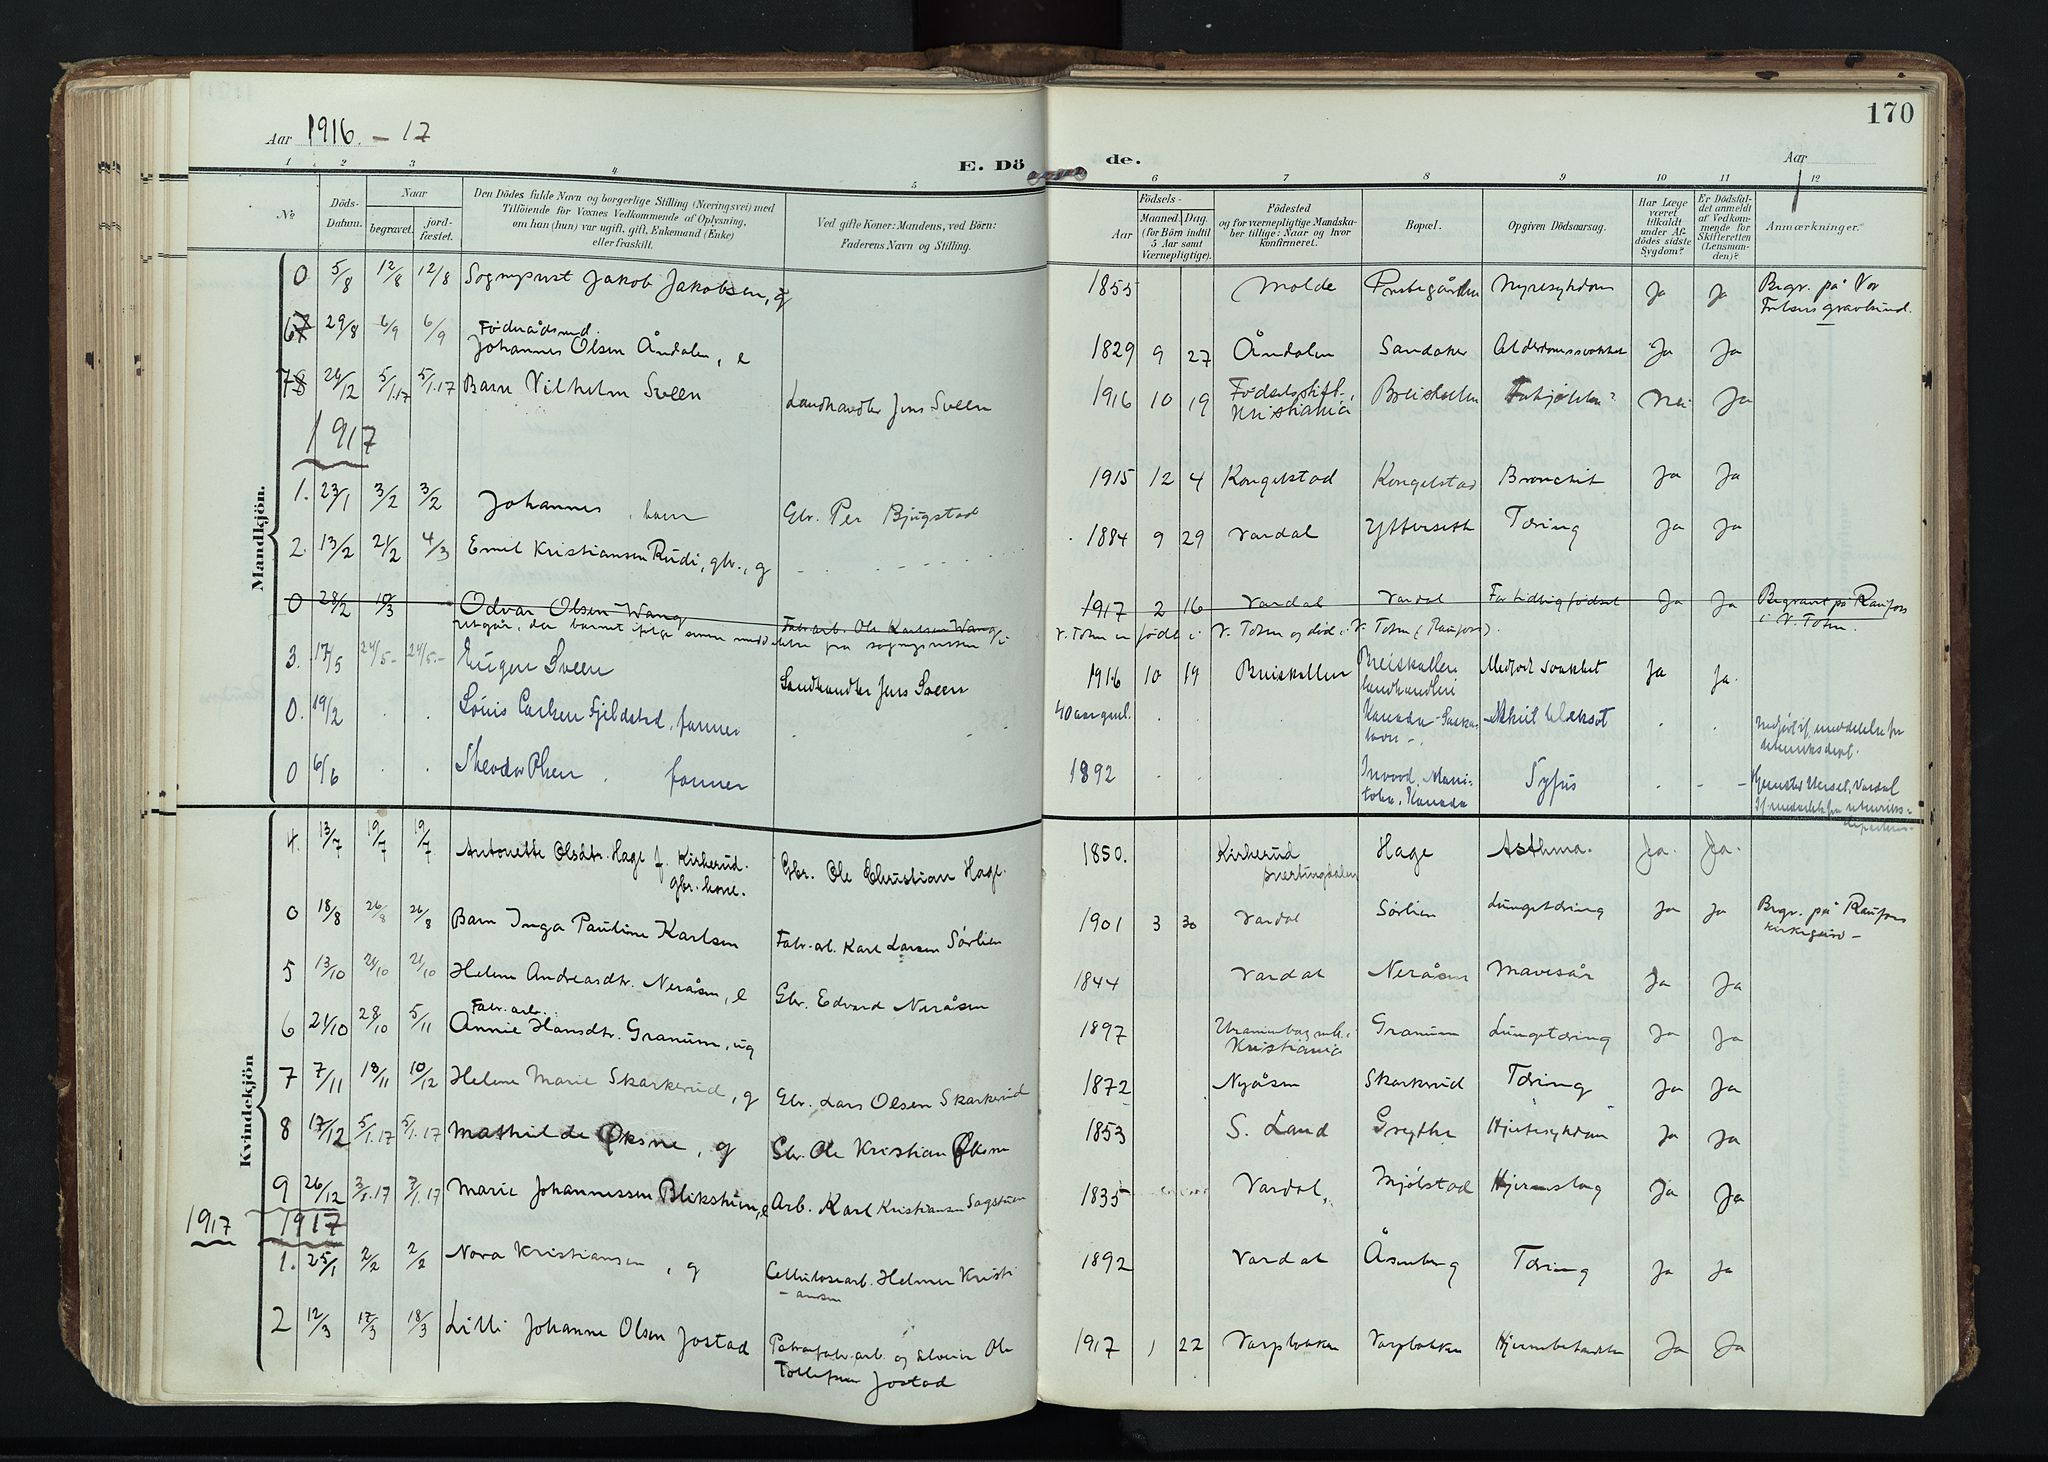 Aar 1916 - 17
E. Dö
de.
Aar
170
1 2 3 4 5 6 7 8 9 10 11 12
№ Döds-Datum. Naar begravet. jordfæstet. Den Dödes fulde Navn og borgerlige Stilling (Næringsvei) med Tilföiende for Voxnes Vedkommende af Oplysning, om han (hun) var ugift, gift, Enkemand (Enke) eller fraskilt. Ved gifte Koner: Mandens, ved Börn: Faderens Navn og Stilling. Födsels- Aar Maaned. Dag. (for Börn indtil 5 Aar samt Værnepligtige). Födested og for værnepligtige Mandskaber tillige: Naar og hvor konfirmeret. Bopæl. Opgiven Dödsaarsag. Har Læge været tilkaldt under Afdödes sidste Sygdom? Er Dödsfaldet anmeldt af Vedkommende for Skifteretten (Lensmanden)? Anmærkninger.
Mandkjön.
0 5/8 12/8 12/8 Sogneprest Jakob Jakobsen, g 1855 Molde Prestegården Nyresykdom Ja Ja Begr. på Vor Frelsers gravlund.
6 29/8 6/9 6/9 Føderådsmd. Johannes Olsen Åndalen, e 1829 9 27 Åndalen Sandaker Alderdomssvakhet Ja Ja
7 24/12 5/1.17 5/1.17 Barn Vilhelm Sveen Landhandler Jens Sveen 1916 10 19 Fødselsstift., Kristiania Breiskallen Nei Ja
1917
1. 23/1 3/2 3/2 Johannes, barn Gbr. Per Bjugstad 1915 12 4 Kongelstad Kongelstad Bronchit Ja Ja
2. 13/2 24/2 4/3 Emil Kristiansen Rudi, gbr., g 1884 9 29 Vardal Ytterseth Tæring Ja Ja
0 28/2 10/3 Odvar Olsen Wang Fabr.arb. Ole Karlsen Wang 1917 2 16 Vardal Vardal For tidlig født Ja Ja Begravet på Raufoss i V. Toten.
utgår, da barnet ifølge meddelelse fra sognepresten i V. Toten er født i V. Toten og død i V. Toten (Raufoss).
3. 17/5 24/5 24/5 Eugen Sveen Landhandler Jens Sveen 1916 10 19 Breiskallen Breiskallen landhandleri Medfødt svakhet Ja Ja.
0. 19/2 Louis Carlsen Fjeldstad, farmer 40 aar gml. Kanada - Indført if. meddelelse fra utenriksdept.
0 6/6 Theodor Olsen, farmer 1892 Inwood, Manitoba, Kanada Tyfus Vardal
Kvindekjön
4. 13/7 19/7 19/7 Antonette Olsdtr. Hage f. Kirkerud gbr. kone. Gbr. Ole Christian Hage. 1850. Kirkerud Snertingdalen Hage Asthma. Ja. Ja.
0 18/8 26/8 26/8 Barn Inga Pauline Karlsen Fabr.arb. Karl Larsen Sørlien 1901 3 30 Vardal Sørlien Lungetæring Ja Ja Begr. på Raufoss kirkegård
5 13/10 21/10 21/10 Helene Andreasdtr. Neråsen, e Gbr. Edvard Neråsen 1844 Vardal Neråsen Mavesår Ja Ja
6 21/10 28/10 5/11 Fabr.arb. Annie Hansdtr. Granum, ug 1897 Kristiania Granum Lungetæring Ja Ja
7 7/11 13/11 10/12 Helene Marie Skarkerud, g Gbr. Lars Olsen Skarkerud 1872 Nyåsen Skarkrud Tæring Ja Ja
8 17/12 5/1.17 5/1.17 Mathilde Øksne, g Gbr. Ole Kristian Øksne 1853 S. Land Grythe Hjertesykdom Ja Ja
9 26/12 3/1.17 7/1.17 Marie Johannessen Blikstuen, e Arb. Karl Kristiansen Sagstuen 1835 Vardal, Mjølstad Hjerneslag Ja Ja
1917 1917
1. 25/1 2/2 2/2 Nora Kristiansen, g Cellulosearb. Helmer Kristiansen 1892 Vardal Åsenberg Tæring Ja Ja
2 12/3 17/3 18/3 Lilli Johanne Olsen Jostad Patronfabr.arb. og Ole Tollefsen Jostad 1917 1 22 Varpbakken Varpbakken Hjernebetændelse Ja Ja